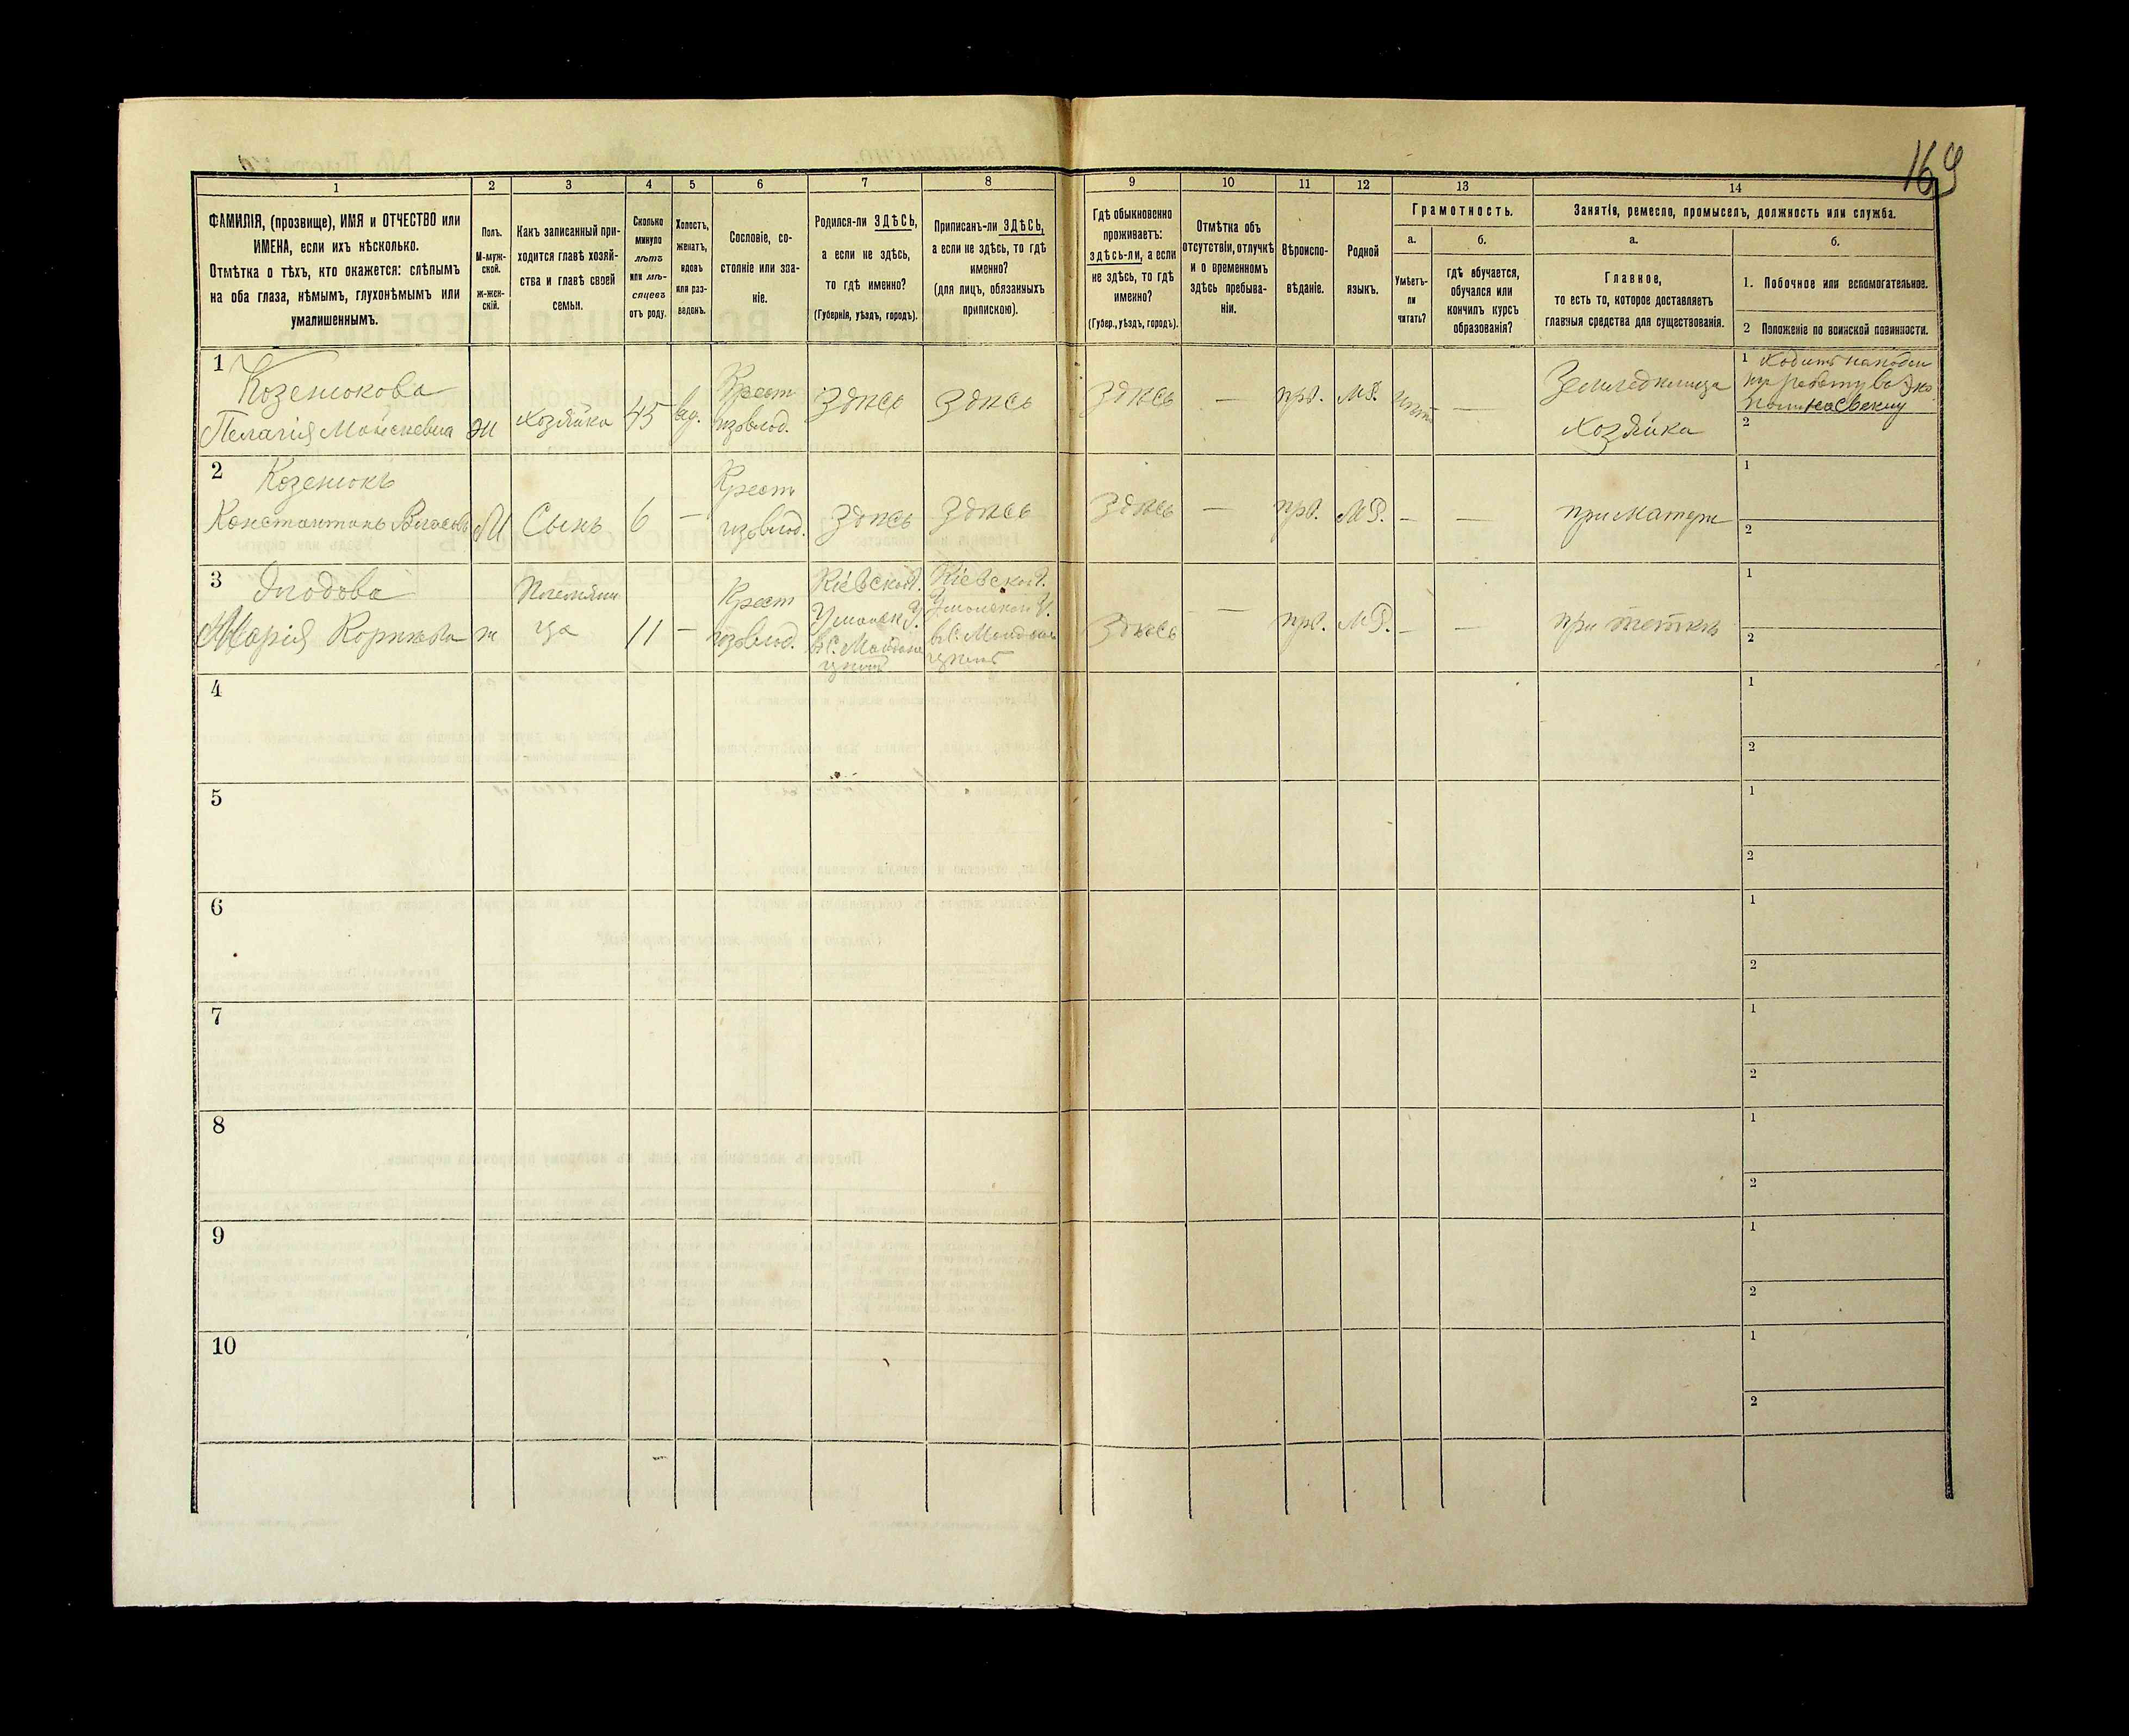 169
1
2
3
4
5
6
7
8
9
10
11
12
13
14
ФАМИЛІЯ, (прозвище), ИМЯ и ОТЧЕСТВО или
ИМЕНА, если ихъ нѣсколько.
Отмѣтка о тѣхъ, кто окажется: слѣпымъ
на оба глаза, нѣмымъ, глухонѣмымъ или
умалишеннымъ.
Полъ.
М-муж-
ской.
ж-жен-
скій.
Какъ записанный при-
ходится главѣ хозяй-
ства и главѣ своей
семьи.
Сколько
минуло
лѣтъ
или мѣ-
сяцевъ
отъ роду.
Холостъ,
женатъ,
вдовъ
или раз-
веденъ.
Сословіе, со-
стояніе или зва-
ніе.
Родился-ли ЗДѢСЬ,
а если не здѣсь,
то гдѣ именно?
(Губернія, уѣздъ, городъ).
Приписанъ-ли ЗДѢСЬ,
а если не здѣсь, то гдѣ
именно?
(для лицъ, обязанныхъ
припискою).
Гдѣ обыкновенно
проживаетъ:
здѣсь-ли, а если
не здѣсь, то гдѣ
именно?
(Губер., уѣздъ, городъ).
Отмѣтка объ
отсутствіи, отлучкѣ
и о временномъ
здѣсь пребыва-
ніи.
Вѣроиспо-
вѣданіе.
Родной
языкъ.
Грамотность.
а.
б.
Умѣетъ-
ли
читать?
гдѣ обучается,
обучался или
кончилъ курсъ
образованія?
Занятіе, ремесло, промыселъ, должность или служба.
а.
б.
Главное,
то есть то, которое доставляетъ
главныя средства для существованія.
1. Побочное или вспомогательное.
2 Положеніе по воинской повинности.
1
Козенюкова
Пелагія Мойсеевна
ж
хозяйка
45
вд.
Крест
изъ влад.
Здѣсь
Здѣсь
Здѣсь
—
прв.
М.Р.
нѣтъ
—
Земледѣлица
Хозяйка
1
Ходитъ на
работу во эко
2
2
Козенюкъ
Константинъ
М
Сынъ
6
—
Крест
изъ влад.
Здѣсь
Здѣсь
Здѣсь
—
прв.
М.Р.
—
—
при матери
1
2
3
Марія
ж
Племянни
ца
11
—
Крест
изъ влад.
Кіевской г.
Уманск. У.
в С. Майдане
цкомъ
Кіевской г.
Уманской У.
в С. Майдане
цкомъ
Здѣсь
—
прв.
М.Р.
—
—
при теткѣ
1
2
4
1
2
5
1
2
6
1
2
7
1
2
8
1
2
9
1
2
10
1
2